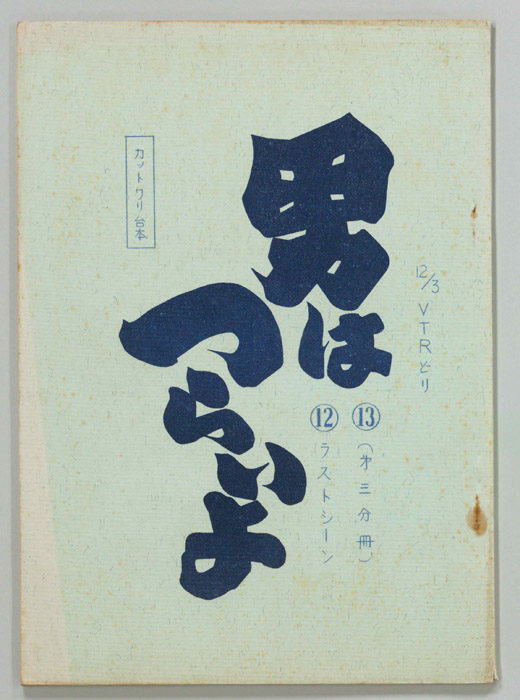 12/3 VTRどり
男は
つらいよ
⑬(才三分冊)
⑫ラストシーン
カットワリ台本